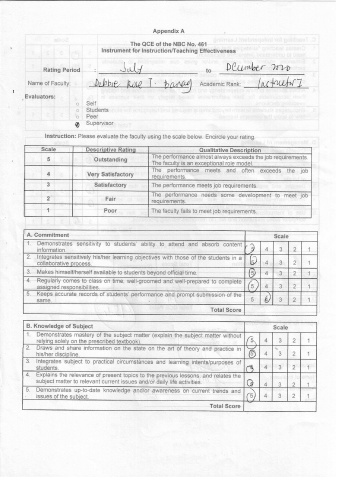 Appendix A
The QCE of the NBC No. 461
Instrument for Instruction/Teaching Effectiveness
Rating Period : July to December 2020
Name of Faculty: Academic Rank: Instructor I
Evaluators:
Self
Students
Peer
Supervisor
Instruction: Please evaluate the faculty using the scale below. Encircle your rating.
Scale Descriptive Rating Qualitative Description
5 Outstanding The performance almost always exceeds the job requirements. The faculty is an exceptional role model.
4 Very Satisfactory The performance meets and often exceeds the job requirements.
3 Satisfactory The performance meets job requirements.
2 Fair The performance needs some development to meet job requirements.
1 Poor The faculty fails to meet job requirements.
A. Commitment Scale
1. Demonstrates sensitivity to students' ability to attend and absorb content information. 5 4 3 2 1
2. Integrates sensitively his/her learning objectives with those of the students in a collaborative process. 5 4 3 2 1
3. Makes himself/herself available to students beyond official time. 5 4 3 2 1
4. Regularly comes to class on time, well-groomed and well-prepared to complete assigned responsibilities. 5 4 3 2 1
5. Keeps accurate records of students' performance and prompt submission of the same. 5 4 3 2 1
Total Score
B. Knowledge of Subject Scale
1. Demonstrates mastery of the subject matter (explain the subject matter without relying solely on the prescribed textbook). 5 4 3 2 1
2. Draws and share information on the state on the art of theory and practice in his/her discipline. 5 4 3 2 1
3. Integrates subject to practical circumstances and learning intents/purposes of students. 5 4 3 2 1
4. Explains the relevance of present topics to the previous lessons, and relates the subject matter to relevant current issues and/or daily life activities. 5 4 3 2 1
5. Demonstrates up-to-date knowledge and/or awareness on current trends and issues of the subject. 5 4 3 2 1
Total Score